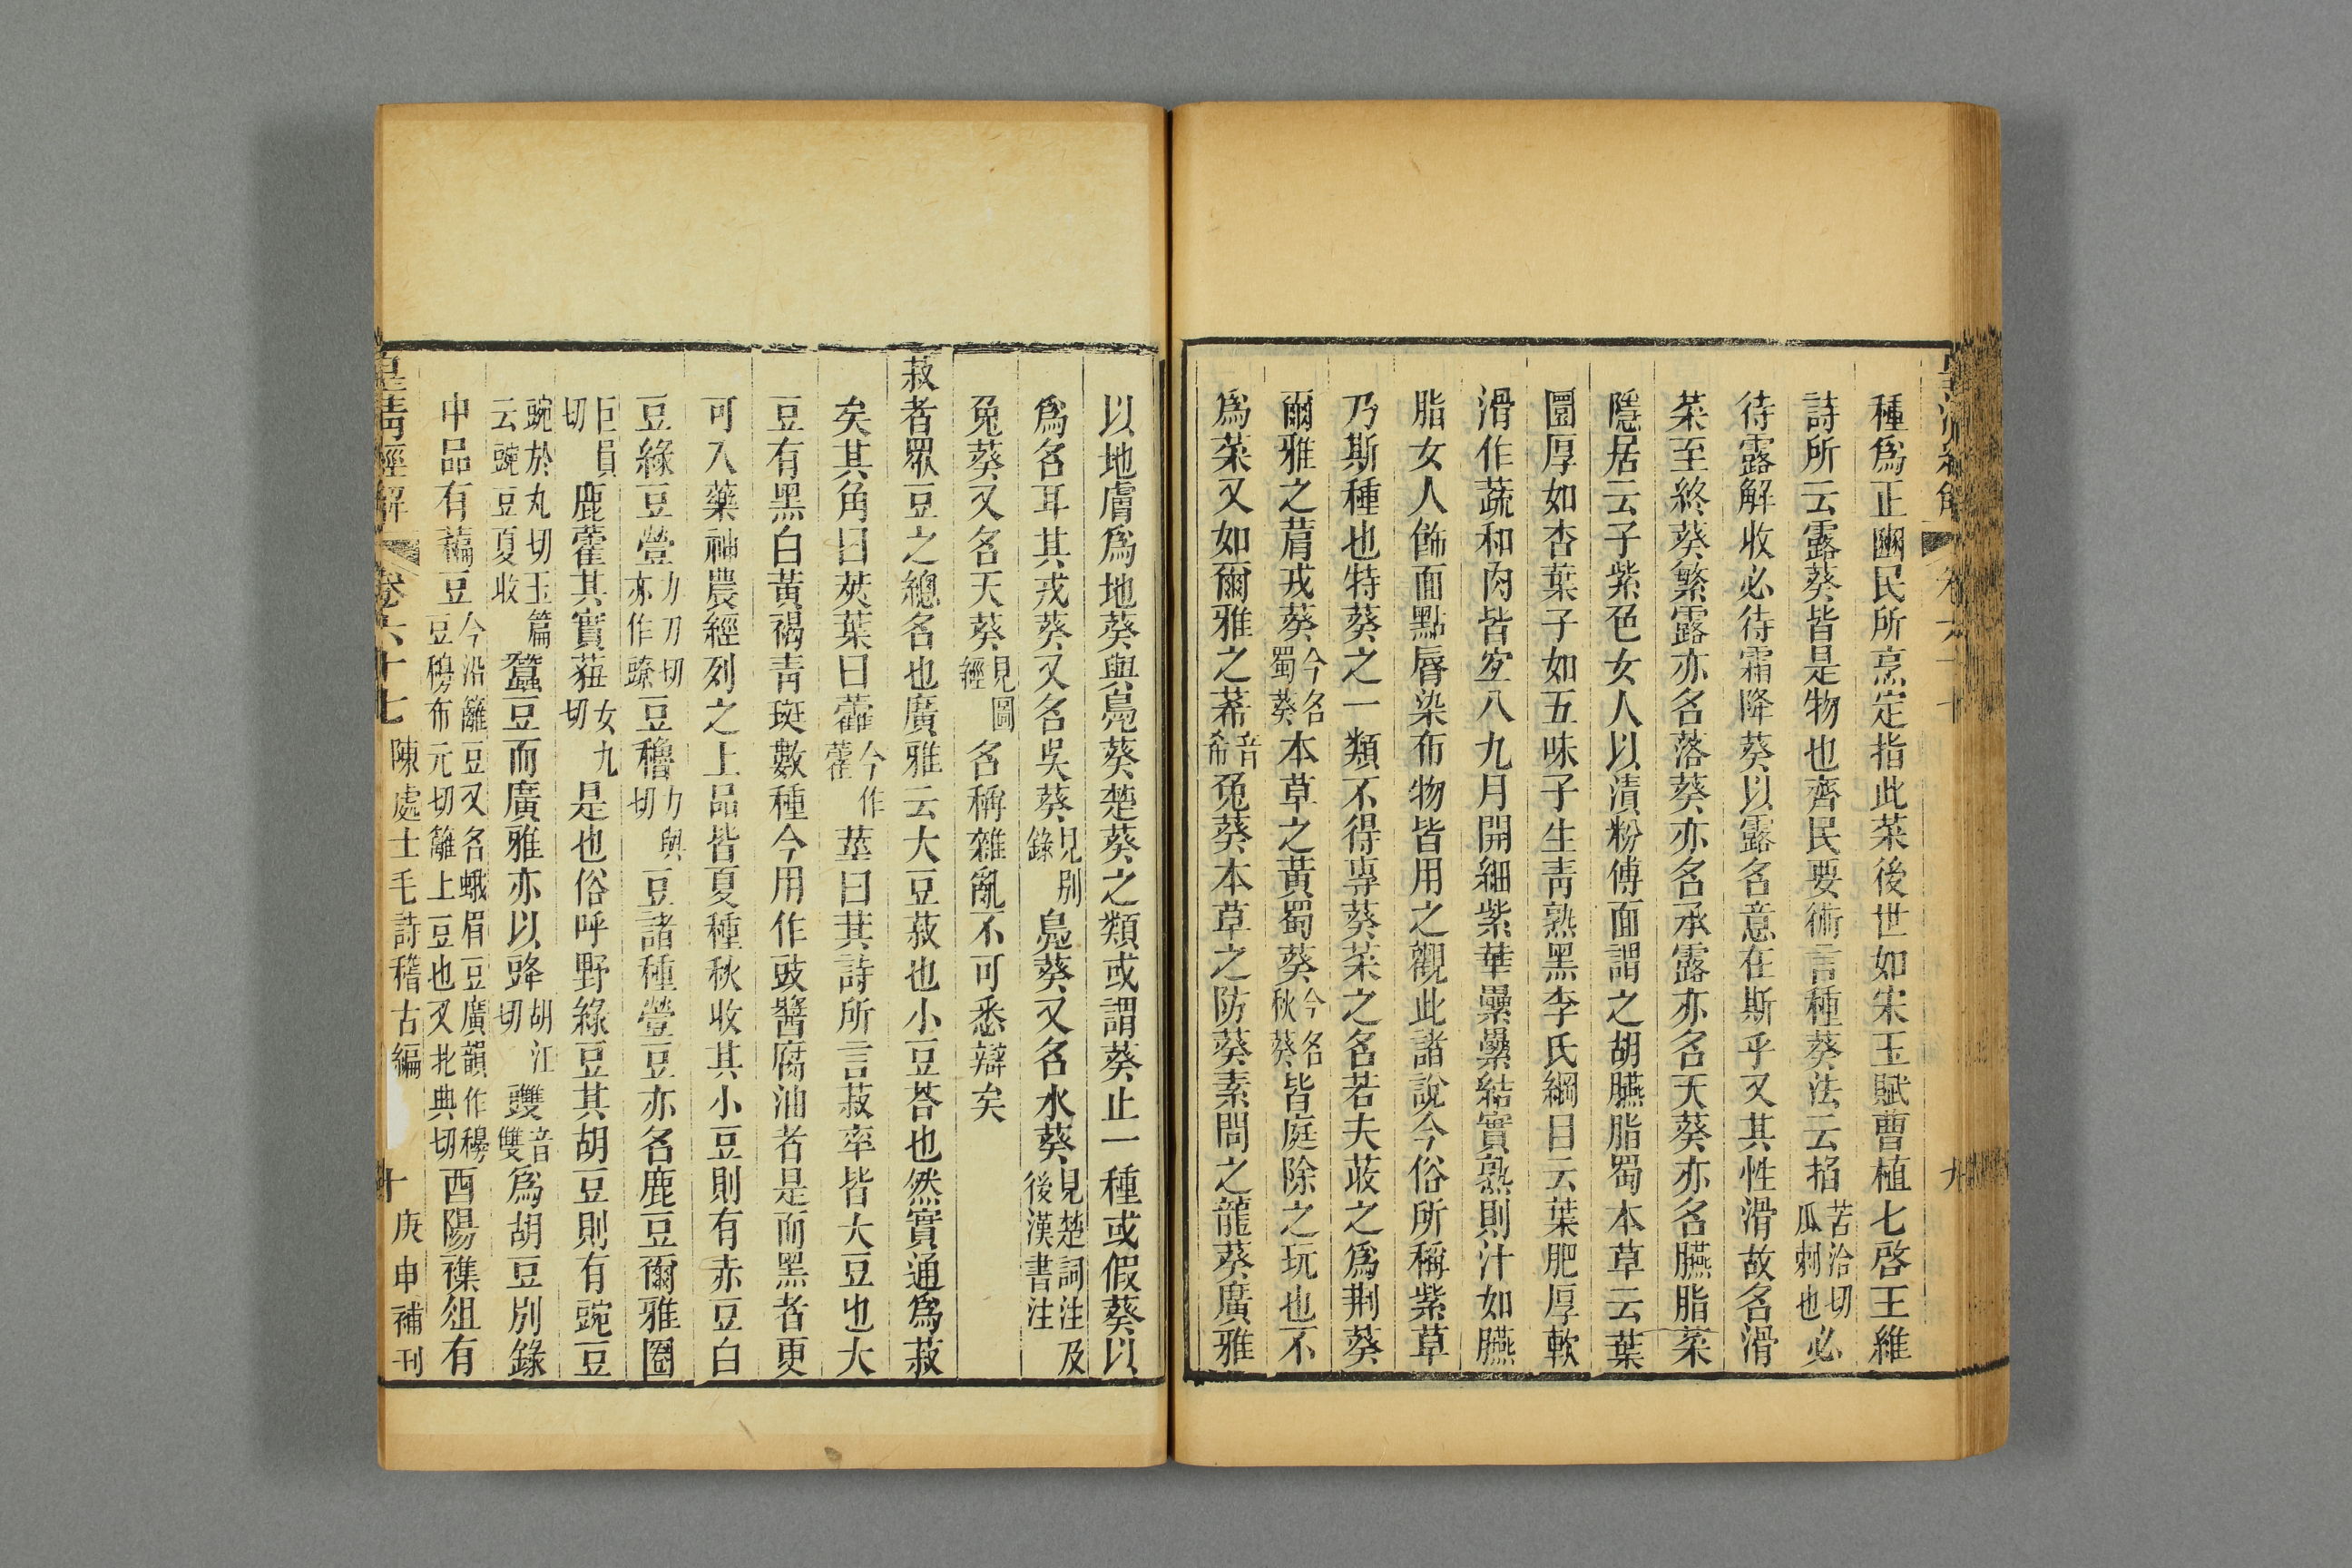 種爲正豳民所烹定指此菜後世如宋玉賦曹植七啓王維
詩所云露葵皆是物也齊民要術言種葵法云掐苦洽切瓜刺也必
待露解收必待霜降葵以露名意在斯乎又其性滑故名滑
菜至終葵繁露亦名落葵亦名承露亦名天葵亦名臙脂菜
隱居云子紫色女人以漬粉傅面謂之胡臙脂蜀本草云葉
圓厚如杏葉子如五味子生青熟黑李氏綱目云葉肥厚軟
滑作蔬和肉皆宐八九月開細紫華纍纍結實熟則汁如臙
脂女人飾面點脣染布物皆用之觀此諸說今俗所稱紫草
乃斯種也特葵之一類不得專葵菜之名若夫荍之爲荆葵
爾雅之菺戎葵今名蜀葵本草之黃蜀葵今名秋葵皆庭除之玩也不
爲菜又如爾雅之莃音希兔葵本草之防葵素問之龍葵廣雅
以地膚爲地葵與鳧葵楚葵之類或謂葵止一種或假葵以
爲名耳其戎葵又名吳葵見別錄鳧葵又名水葵見楚詞注及後漢書注
兔葵又名天葵見圖經名稱雜亂不可悉辯矣
菽者眾豆之總名也廣雅云大豆菽也小豆荅也然實通爲菽
矣其角曰莢葉曰藿今作藿莖曰萁詩所言菽率皆大豆也大
豆有黑白黃褐青斑數種今用作豉醬腐油者是而黑者更
可入藥神農經列之上品皆夏種秋收其小豆則有赤豆白
豆綠豆䝁力刀切亦作䝀豆穭力與切豆諸種䝁豆亦名鹿豆爾雅圈
巨員切鹿藿其實莥女九切是也俗呼野綠豆其胡豆則有豌豆
豌於丸切玉篇云豌豆夏收蠶豆而廣雅亦以䜶胡江切䝄音雙爲胡豆別錄
中品有藊豆今沿籬豆又名蛾眉豆廣韻作䅹豆䅹布元切籬上豆也又北典切酉陽襍俎有
皇清經解
卷六十七 陳處士毛詩稽古編
十
庚申補刊
九